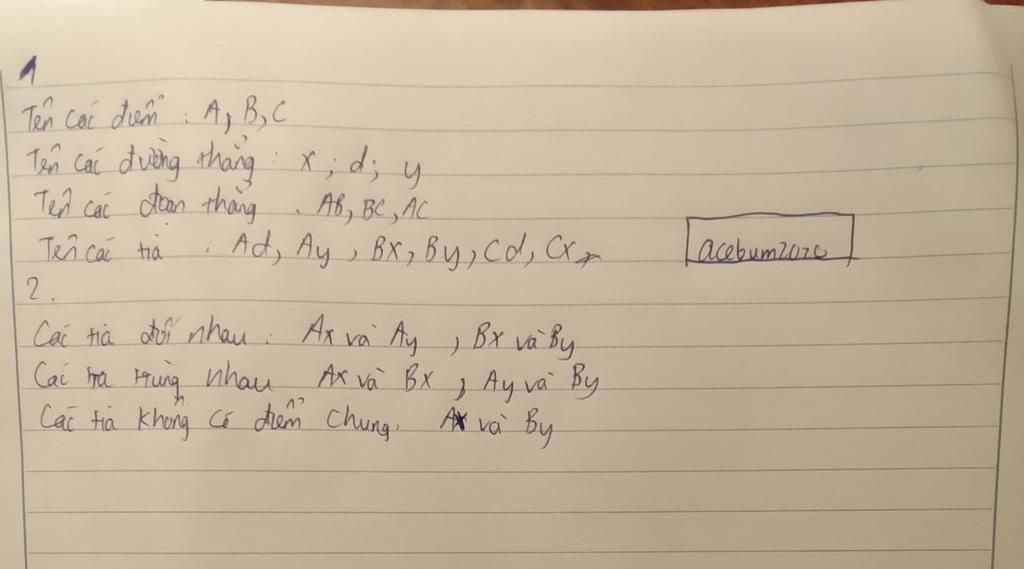 1
Tên các điểm : A, B, C
Tên các đường thẳng : x ; d ; y
Tên các đoạn thẳng . AB, BC, AC
Tên các tia : Ad, Ay, Bx, By, Cd, Cx,
acebum2020
2.
Các tia đối nhau : Ax và Ay, Bx và By
Các tia trùng nhau Ax và Bx, Ay và By
Các tia không có điểm chung. Ax và By